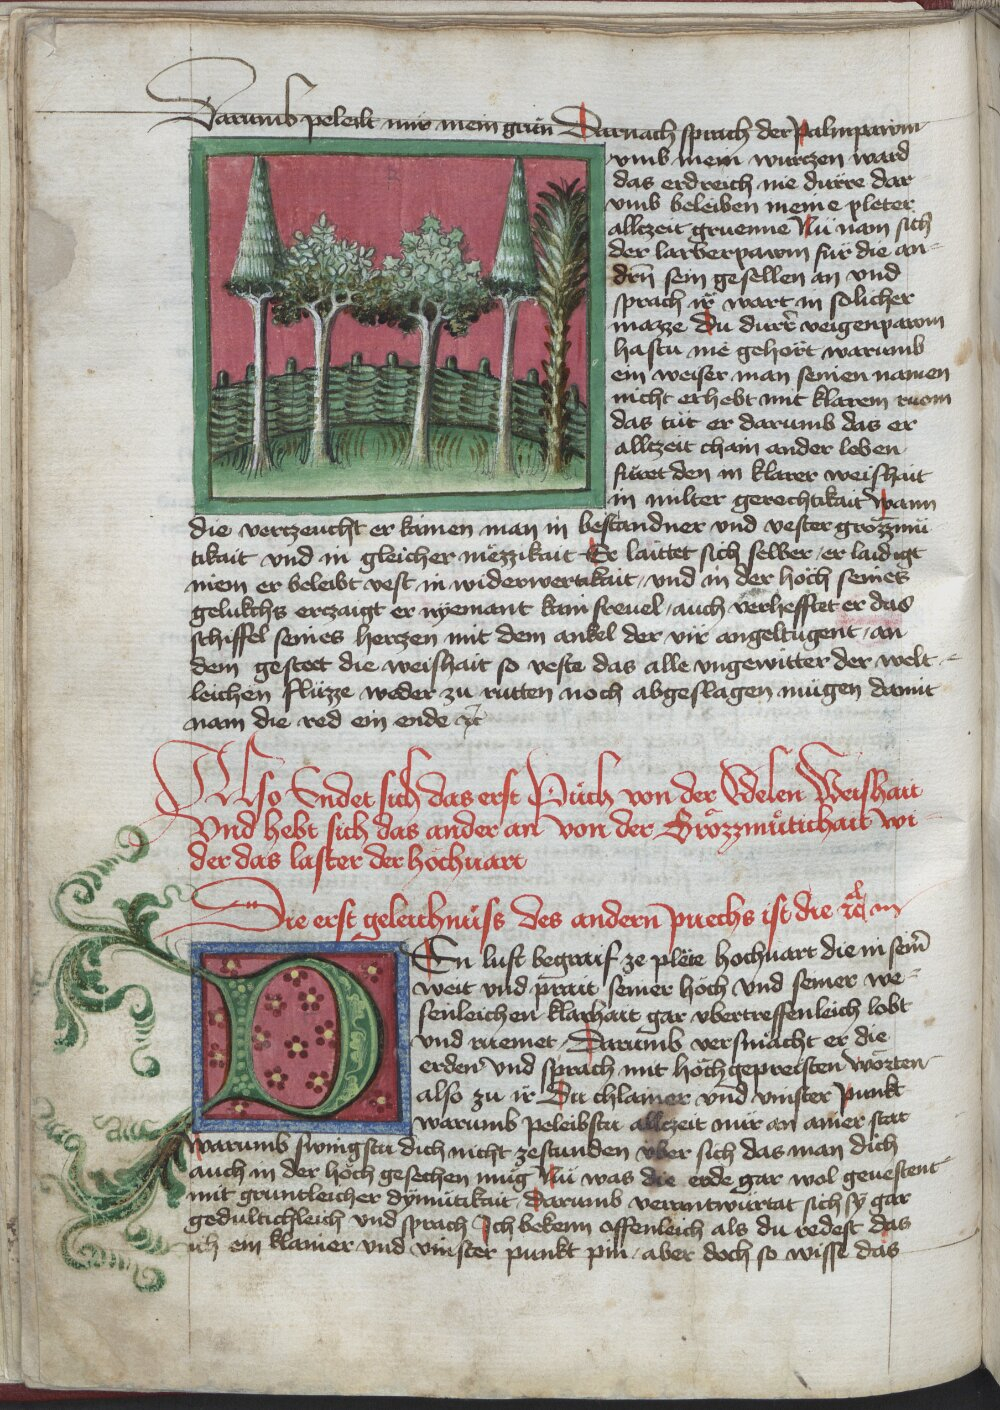 Darumb peleibt mir mein grün Darnach sprach der Palmpawm
vmb mein wurczen ward
das erdreich nie dürre dar
vmb beleiben meine pleter
allczeit gruenne Nü nam sich
der larberpawm für die an
drñ sein gesellen an vnd
sprach ir wart in solicher
mazze Du durr veigenpawm
hastu nie gehört warumb
ein weiser man seinen namen
nicht erhebt mit klarem ruom
das tüt er darumb das er
allczeit chain ander leben
füret den in klarer weishait
in milter gerechtikait Wann
die verczeucht er kainen man in bestandner vnd vester grozzmü
tikait vnd in gleicher mezzikait Er lauttet sich selber er laidigt
niem er beleibt vest in widerwertikait vnd in der höch seines
gelukchs erczaigt er nyemant kain freuel auch verhefftet er das
schiffel seines herczen mit dem ankel der vir angeltugent an
dem gesteet die weishait so veste das alle vngewitter der welt
leichen flüzze weder zu rütten noch abgeslagen mügen damit
nam die red ein ende ꝛc
Also Endet sich das erst Püch von der Edelen Weishait
Vnd hebt sich das ander an von der Grözzmütichait wi
der das laster der höchuart
Die erst geleichnüss des andern puechs ist die
DEn lufft begraif ze plete hochuart die in seiñ
weit vnd prait seiner höch vnd seiner we
senleichen klarhait gar vbertreffenleich lobt
vnd ruemet Darumb versmächt er die
erden vnd sprach mit höchgepreisten worten
also zu ir Du chlainer vnd vinster punkt
warumb peleibstu allczeit nür an ainer stat
Warumb swingstu dich nicht zestunden vber sich das man dich
auch in der höch gesechen müg Nü was die erde gar wol geuestent
mit gruntleicher dymütikait Darumb verantwürtat sich sy gar
gedultichleich vnd sprach Ich bekenn offenleich als du redest das
ich ein klainer vnd vinster punkt pin aber doch so wisse das